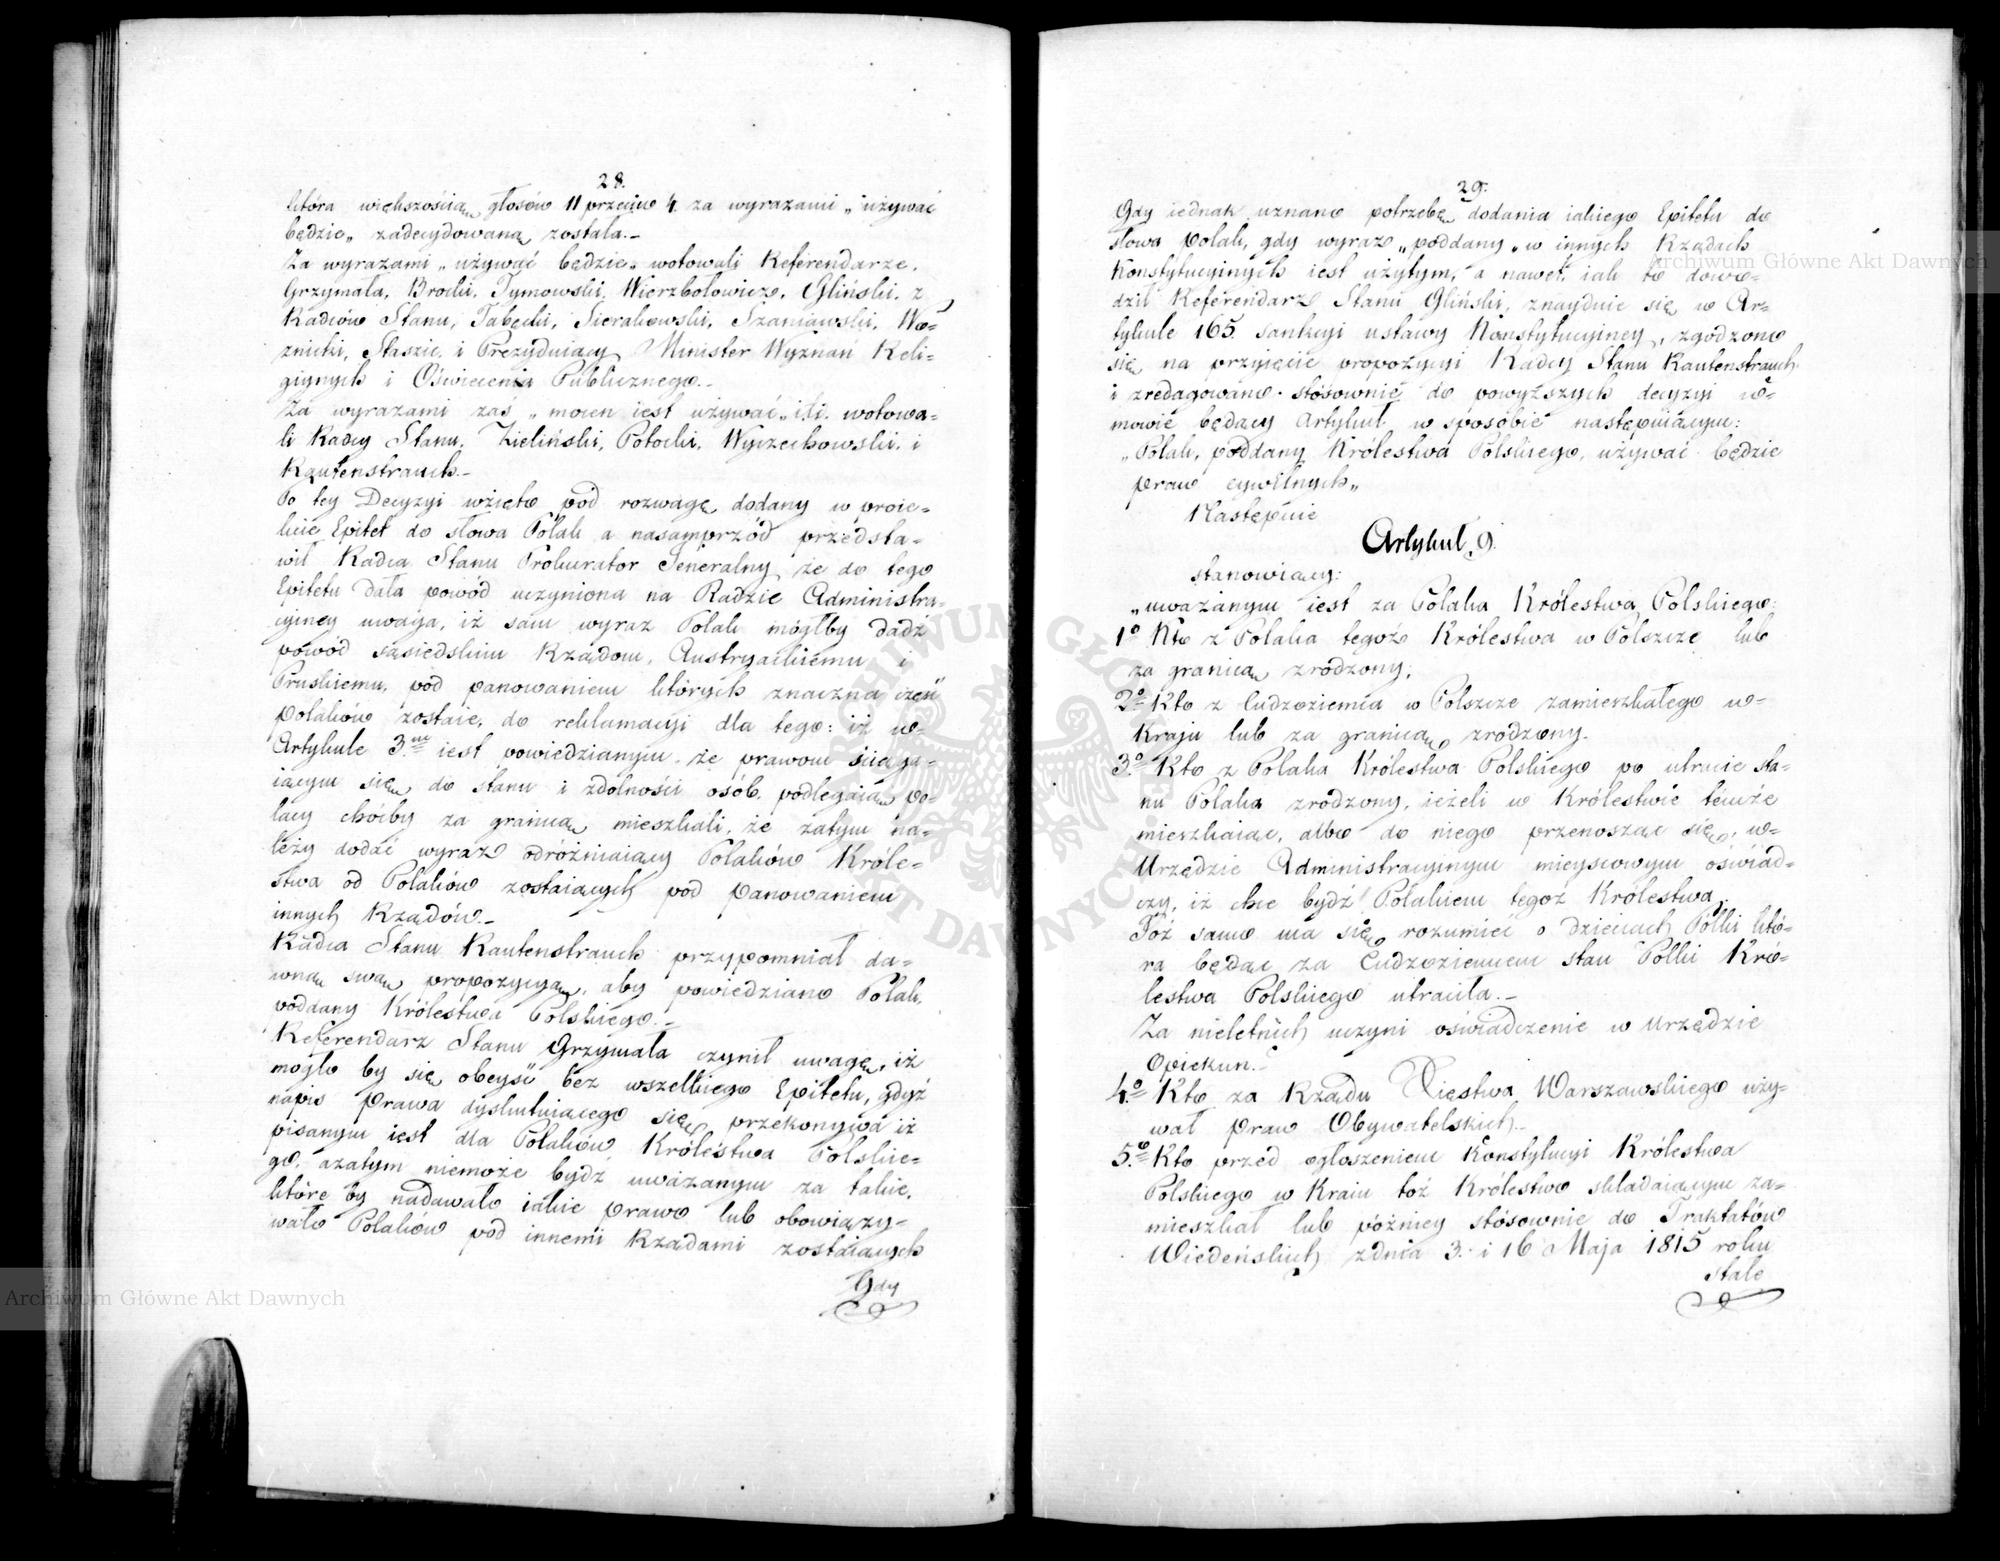 28.
która większością głosów 11 przeciw 4. za wyrazami „używać
będzie„ zadecydowaną została.-
Za wyrazami „używać będzie„ wotowali Referendarze.
Grzymała, Brocki, Tymowski, Wierzbołowicz, Gliński, z
Radców Stanu, Tabęcki, Sierakowski, Szaniawski, Wo-
znicki, Staszic, i Prezyduiący Minister Wyznań Reli-
giynych i Oświecenia Publicznego.-
Za wyrazami zaś „mocen iest używać„ itd. wotowa-
li Radcy Stanu, Zieliński, Potocki, Wyczechowski, i
Rautenstrauch.-
Po tey Decyzyi wzięto pod rozwagę dodany w proie-
kcie Epitet do słowa Polak a nasamprzód przedsta-
wił Radca Stanu Prokurator Generalny, że do tego
Epitetu dała powód uczyniona na Radzie Administra-
cyiney uwaga, iż sam wyraz Polak mógłby dadź
powód sąsiedzkim Rządom, Austryackiemu i
Pruskiemu, pod panowaniem których znaczna część
Polaków zostaie, do reklamacyi dla tego: iż w
Artykule 3m iest powiedzianym, że prawom ściąga-
iącym się do stanu i zdolności osób, podlegaią Po-
lacy chóćby za granicą mieszkali, że zatym na-
leży dodać wyraz odróżniaiący Polaków Króle-
stwa od Polaków zostaiących pod panowaniem
innych Rządów.-
Radca Stanu Rautenstrauch przypomniał da-
wną swą propozycyą, aby powiedziano Polak,
poddany Królestwa Polskiego.-
Referendarz Stanu Grzymała czynił uwagę, iż
mogło by się obeyść bez wszelkiego Epitetu, gdyż
napis Prawa dyskutuiącego się przekonywa iż
pisanym iest dla Polaków Królestwa Polskie-
go, azatym niemoże bydź uważanym za takie,
które by nadawało iakie prawo lub obowiązy-
wało Polaków pod innemi Rządami zostaiących
Gdy
29.
Gdy iednak uznano potrzebę dodania iakiego Epitetu do
słowa Polak, gdy wyraz „poddany„ w innych Rządach
Konstytucyinych iest użytym, a nawet, iak to dowo-
dził Referendarz Stanu Gliński, znayduie się w Ar-
tykule 165. sankcyi ustawy Konstytucyiney, zgodzono
się na przyięcie propozycyi Radcy Stanu Rautenstrauch
i zredagowano stósownie do powyższych decyzyi w-
mowie będący Artykuł w sposobie następuiącym:
„Polak, poddany Królestwa Polskiego, używać będzie
praw cywilnych„
Następnie
Artykuł 9.
stanowiący:
„uważanym iest za Polaka Królestwa Polskiego:
1o Kto z Polaka tegoż Królestwa w Polszcze lub
za granicą zrodzony;
2o Kto z Cudzoziemca w Polszcze zamieszkałego w-
Kraju lub za granicą zrodzony.
3o Kto z Polaka Królestwa Polskiego po utracie sta-
nu Polaka zrodzony, ieżeli w Królestwie temże
mieszkaiąc, albo do niego przenosząc się, w-
Urzędzie Administracyinym mieyscowym oświad-
czy, iż chce bydź Polakiem tegoż Królestwa.
Toż samo ma się rozumieć o dzieciach Polki któ-
ra będąc za Cudzoziemcem stan Polki Kró-
lestwa Polskiego utraciła.-
Za nieletnich uczyni oświadczenie w Urzędzie
Opiekun.-
4o Kto za Rządu Xięstwa Warszawskiego uży-
wał Praw Obywatelskich.-
5o Kto przed ogłoszeniem Konstytucyi Królestwa
Polskiego w Kraiu toż Królestwo składaiącym za-
mieszkał lub później stósownie do Traktatów
Wiedeńskich z dnia 3. i 16 Maja 1815 roku
stale
Archiwum Główne Akt Dawnych
Archiwum Główne Akt Dawnych
ARCHIWUM GŁÓWNE AKT DAWNYCH